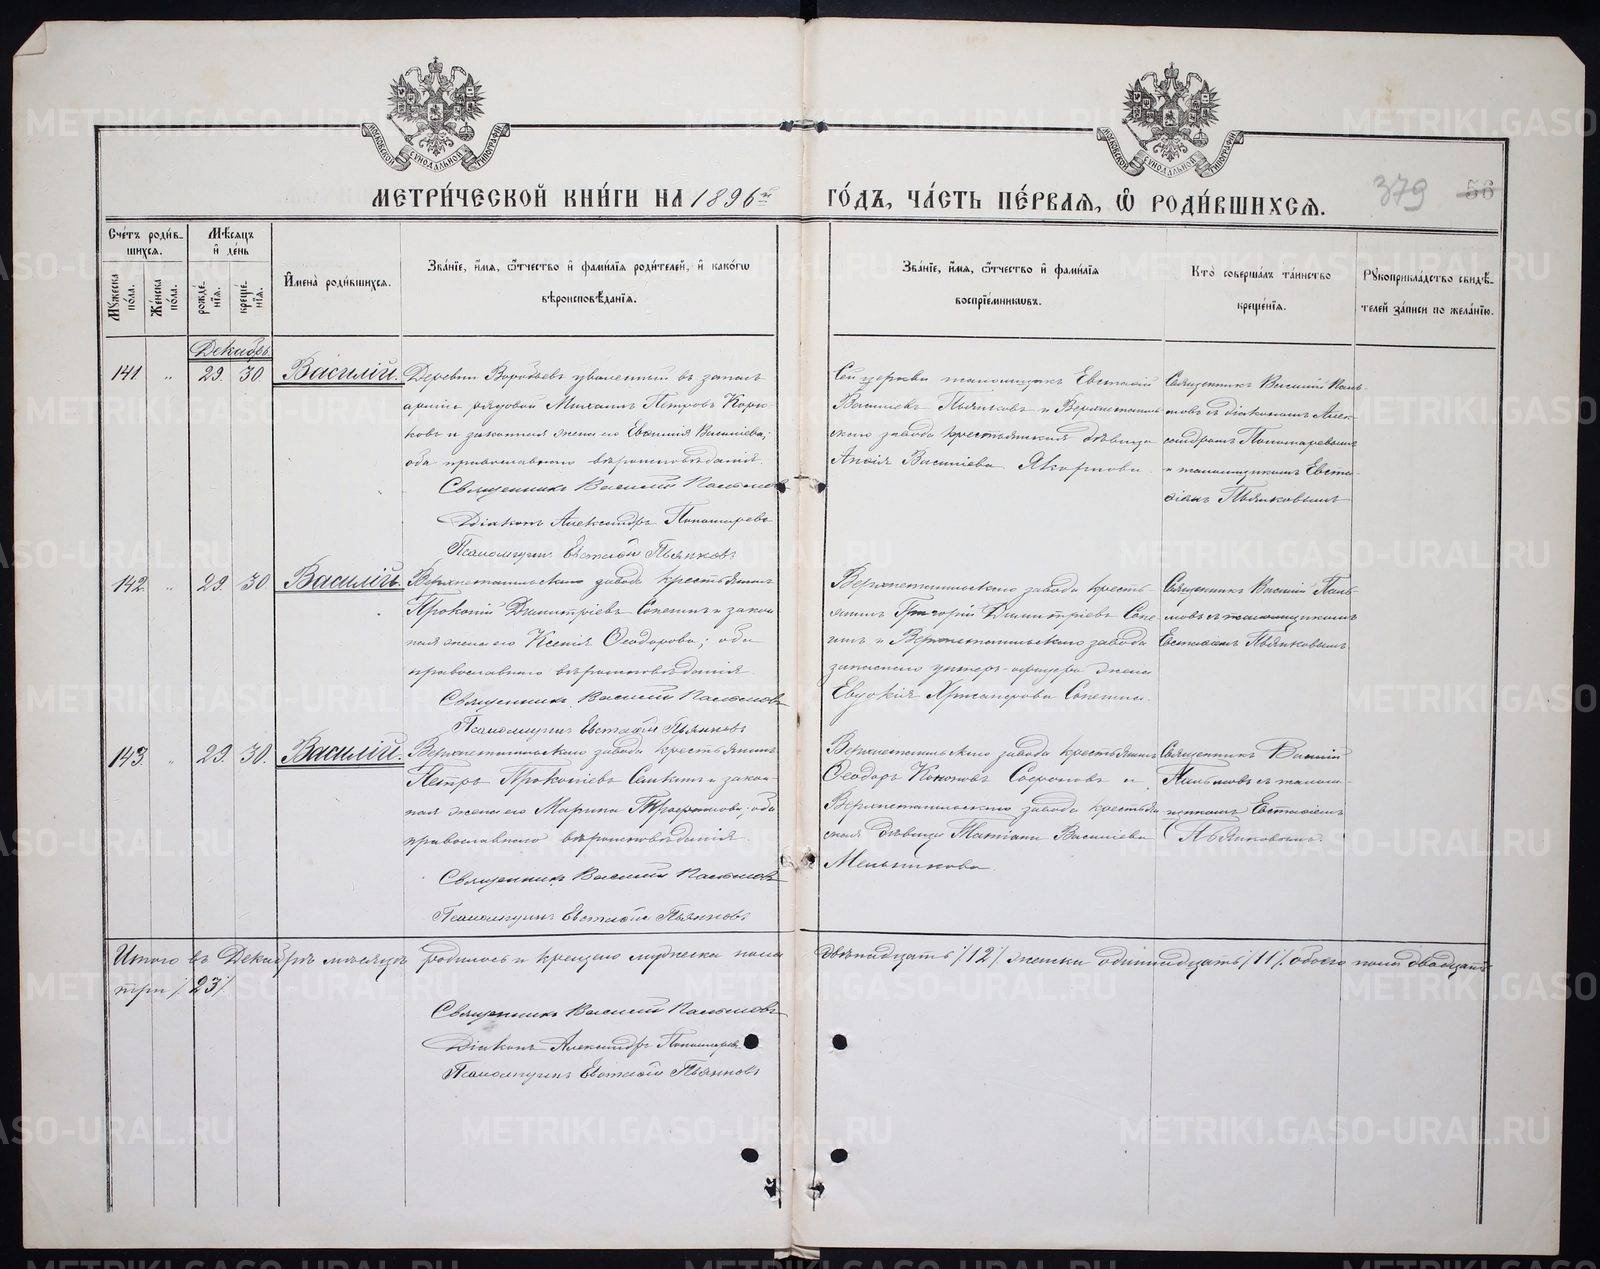 МЕТРИ́ЧЕСКОЙ КНИ́ГИ НА 1896й ГО́ДЪ, ЧА́СТЬ ПЕ́РВАЯ, Ѡ҆ РОДИ́ВШИХСЯ.
379 56
МОСКОВСКОЙ СУНОДАЛЬНОЙ ТИПОГРАФІИ
МОСКОВСКОЙ СУНОДАЛЬНОЙ ТИПОГРАФІИ
Счетъ роди́в-
шихся.
Мужеска по́ла.
Же́нска по́ла.
Мѣсяцъ
и҆ де́нь
рожде́-
нія.
креще́-
нія.
И҆мена̀ роди́вшихся.
Зва́ніе, и҆́мя, ѻ҆́тчество и҆ фами́лія роди́телей, и҆ како́гѡ
вѣроисповѣ́данія.
Зва́ніе, и҆́мя, ѻ҆́тчество и҆ фами́лія
воспріе́мниковъ.
Кто̀ соверша́лъ та́инство
креще́нія.
Рукоприкла́дство свидѣ́-
телей за́писи по жела́нію.
Декабрь.
141 „ 29. 30. Василій.
Деревни Воробьевъ уволенный въ запасъ
арміи рядовой Михаилъ Петровъ
и законная жена его Евѳимія Васильева;
оба православнаго вѣроисповѣданія.
Священникъ Василій
Діаконъ Александръ Пономаревъ
Псаломщикъ Евстаѳій Пьянковъ
Сей церкви псаломщикъ Евстаѳій
Васильевъ Пьянковъ и Верхнетагиль-
скаго завода крестьянская дѣвица
Васильева
Священникъ Василій
съ діакономъ Алек-
сандромъ Пономаревымъ
и псаломщикомъ Евста-
ѳіемъ Пьянковымъ
142. „ 29. 30. Василій.
Верхнетагильскаго завода крестьянинъ
Прокопій Димитріевъ и закон-
ная жена его Ксенія Ѳеодорова; оба
православнаго вѣроисповѣданія
Священникъ Василій
Псаломщикъ Евстаѳій Пьянковъ
Верхнетагильскаго завода кресть-
янинъ Григорій Димитріевъ
и Верхнетагильскаго завода
запаснаго унтеръ-офицера жена
Евдокія
Священникъ Василій
съ псаломщикомъ
Евстаѳіемъ Пьянковымъ
143. „ 29. 30. Василій.
Верхнетагильскаго завода крестьянинъ
Петръ Прокопіевъ и закон-
ная жена его Марина; оба
православнаго вѣроисповѣданія.
Священникъ Василій
Псаломщикъ Евстаѳій Пьянковъ
Верхнетагильскаго завода крестьянинъ
Ѳеодоръ и
Верхнетагильскаго завода крестьян-
ская дѣвица Татіана Васильева
Мельникова
Священникъ Василій
съ псалом-
щикомъ Евстаѳіемъ
Пьянковымъ.
Итого въ Декабрѣ мѣсяцѣ родилось и крещено мужеска пола двѣнадцать /12/ женска одиннадцать /11/ обоего пола двадцать
три /23/
Священникъ Василій
Діаконъ Александръ Пономаревъ
Псаломщикъ Евстаѳій Пьянковъ
METRIKI.GASO-URAL.RU